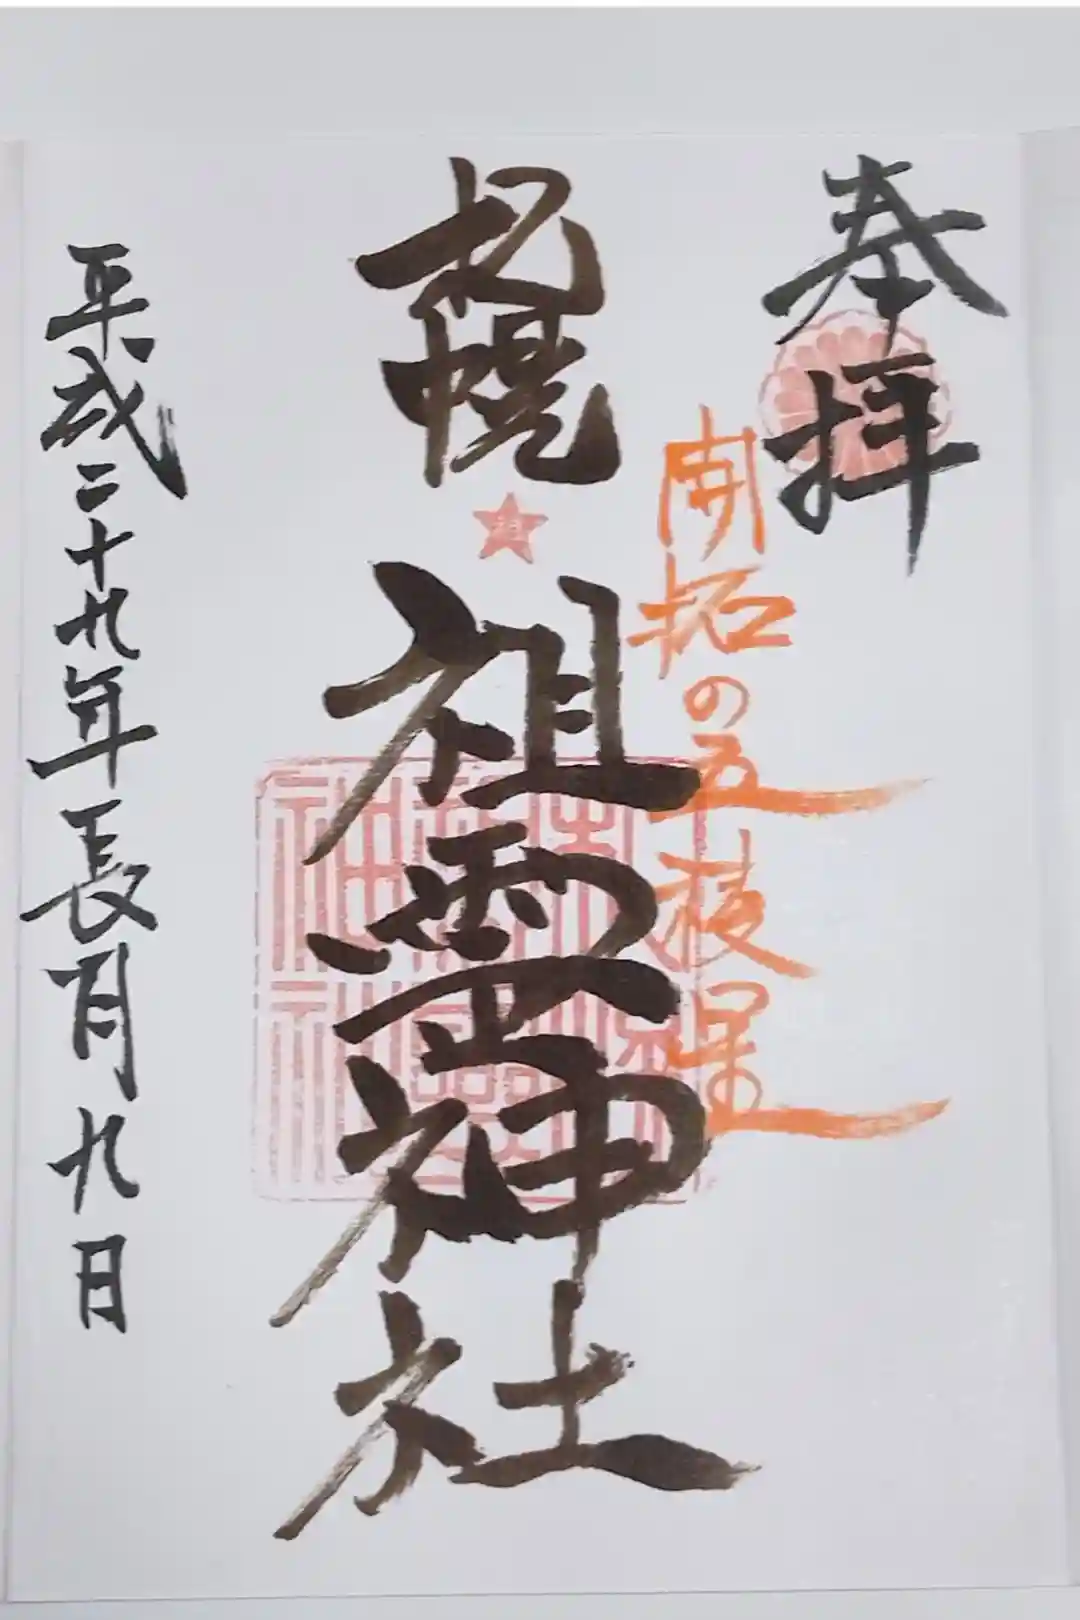 奉拝
開拓の五稜星
札幌
祖霊神社
平成二十九年長月九日